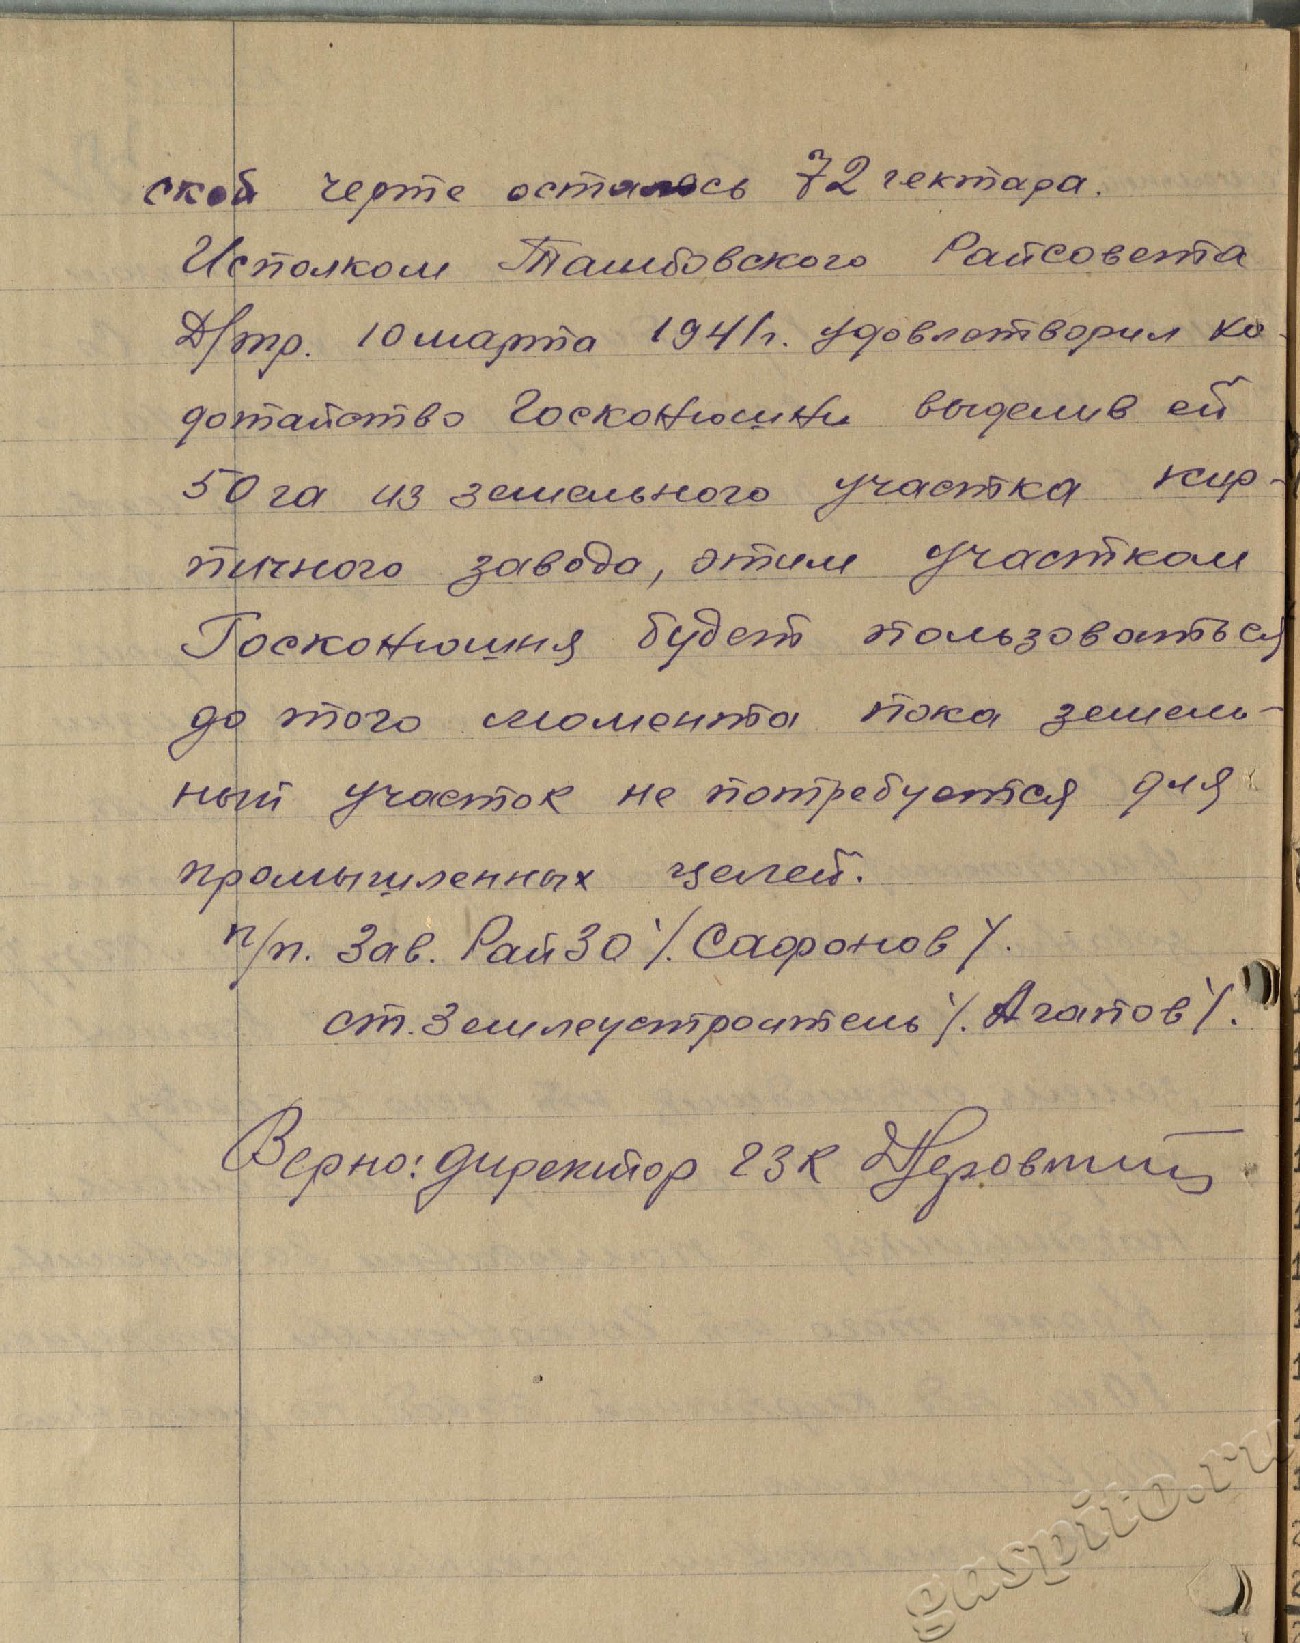 ской черте осталось 72 гектара.
Исполком Тамбовского Райсовета
Д/тр. 10 марта 1941г. удовлетворил хо-
датайство Госконюшни выделив ей
50 га из земельного участка кир-
пичного завода, этим участком
Госконюшня будет пользоваться
до того момента пока земель-
ный участок не потребуется для
промышленных целей.
п/п. Зав. РайЗО /. Сафонов /.
ст. Землеустроитель /. Агапов /.
Верно: директор ГЗК
gaspito.ru